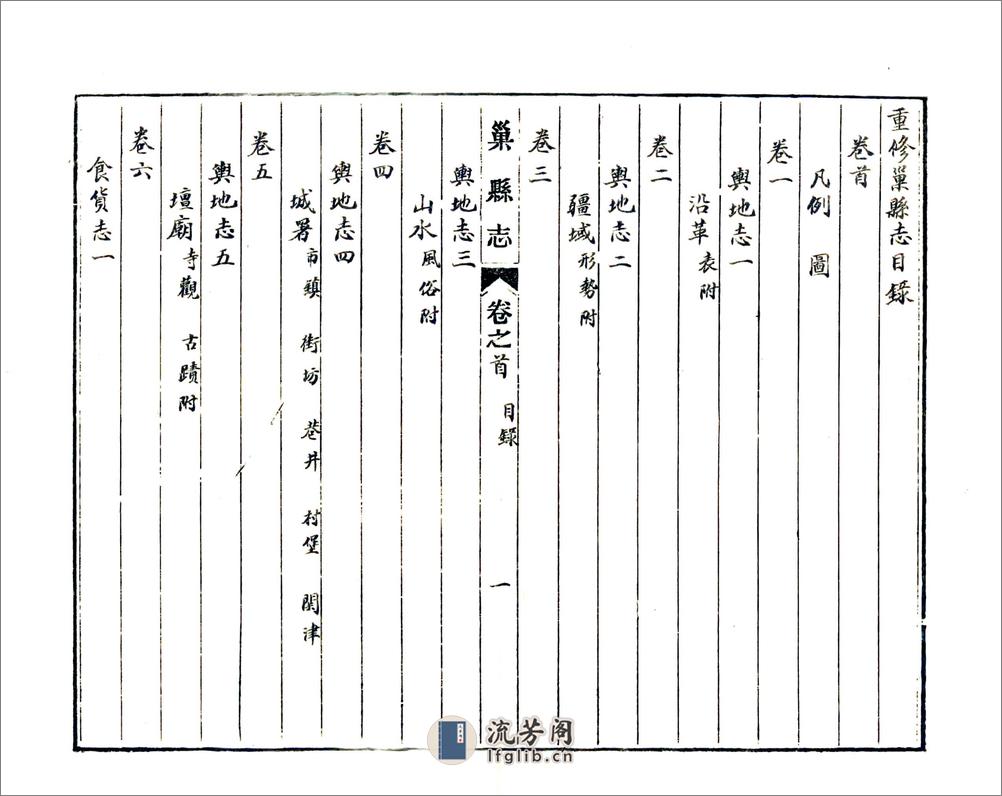 重修巢縣志目錄
卷首
凡例 圖
卷一
輿地志一
沿革表附
卷二
輿地志二
疆域形勢附
卷三
巢縣志 卷之首 目錄 一
輿地志三
山水風俗附
卷四
輿地志四
城署市鎮 街坊 巷井 村堡 關津
卷五
輿地志五
壇廟寺觀 古蹟附
卷六
食貨志一
流芳阁
lfglib.cn